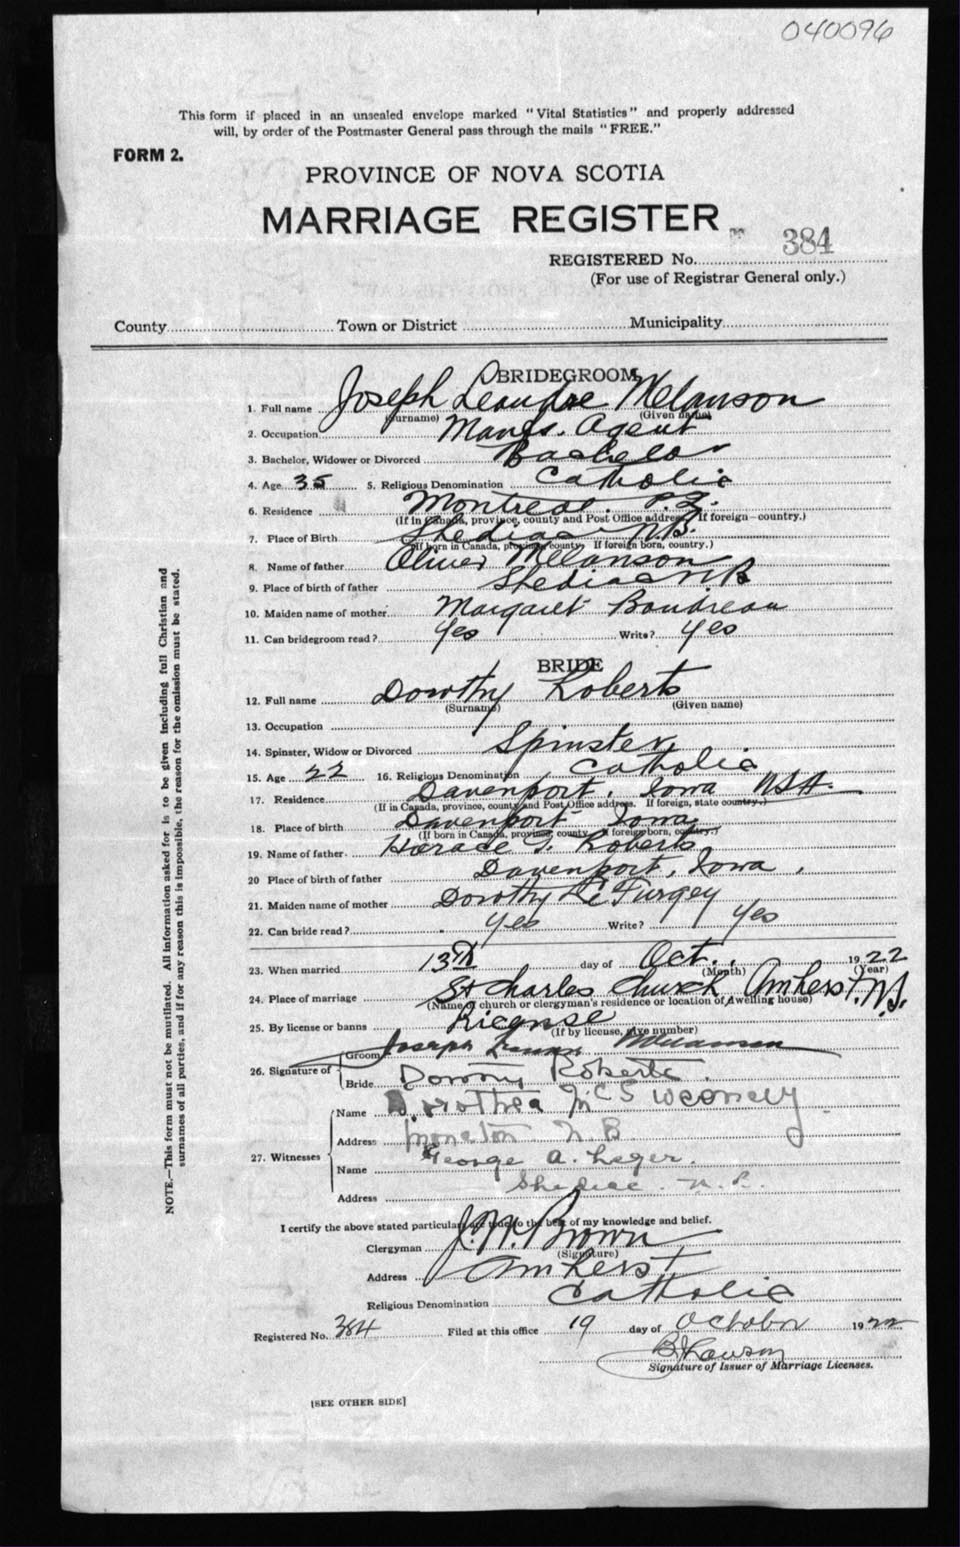 040096
This form if placed in an unsealed envelope marked "Vital Statistics" and properly addressed
will, by order of the Postmaster General pass through the mails "FREE."
FORM 2.
PROVINCE OF NOVA SCOTIA
MARRIAGE REGISTER
REGISTERED No. 384
(For use of Registrar General only.)
County Town or District Municipality
BRIDEGROOM
1. Full name Joseph Leandre Melanson
(Surname) (Given name)
2. Occupation Manfs. Agent
3. Bachelor, Widower or Divorced Bachelor
4. Age 35 5. Religious Denomination Catholic
6. Residence Montreal. P.Q.
(If in Canada, province, county and Post Office address. If foreign—country.)
7. Place of Birth Shediac N.B.
(If born in Canada, province, county. If foreign born, country.)
8. Name of father Oliver Melanson
9. Place of birth of father Shediac N.B
10. Maiden name of mother Margaret Boudreau
11. Can bridegroom read? Yes Write? Yes
BRIDE
12. Full name Dorothy Roberts
(Surname) (Given name)
13. Occupation
14. Spinster, Widow or Divorced Spinster
15. Age 22 16. Religious Denomination Catholic
17. Residence Davenport, Iowa USA.
(If in Canada, province, county and Post Office address. If foreign, state country.)
18. Place of birth Davenport Iowa
(If born in Canada, province, county. If foreign born, country.)
19. Name of father Horace Roberts
20 Place of birth of father Davenport, Iowa,
21. Maiden name of mother Dorothy Le Furgey
22. Can bride read? Yes Write? Yes
23. When married 13th day of Oct. 1922
(Month) (Year)
24. Place of marriage St Charles Church Amherst, N.S.
(Name of church or clergyman's residence or location of dwelling house)
25. By license or banns License
(If by license, give number)
Groom Joseph Leandre Melanson
26. Signature of
Bride Dorothy Roberts.
Name Dorothea McSweeney
Address Moncton N.B
27. Witnesses George A.
Name
Shediac. N.B.
Address
I certify the above stated particulars are true to the best of my knowledge and belief.
Clergyman J. W. Brown
(Signature)
Address Amherst
Religious Denomination Catholic
Registered No. 384 Filed at this office 19 day of October 1922
Signature of Issuer of Marriage Licenses.
[SEE OTHER SIDE]
NOTE.—This form must not be mutilated. All information asked for is to be given including full Christian and
surnames of all parties, and if for any reason this is impossible, the reason for the omission must be stated.